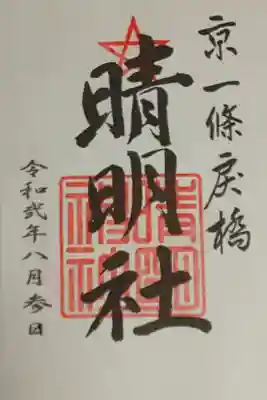 京一條戻橋
晴明社
晴明神社
令和弐年八月参日